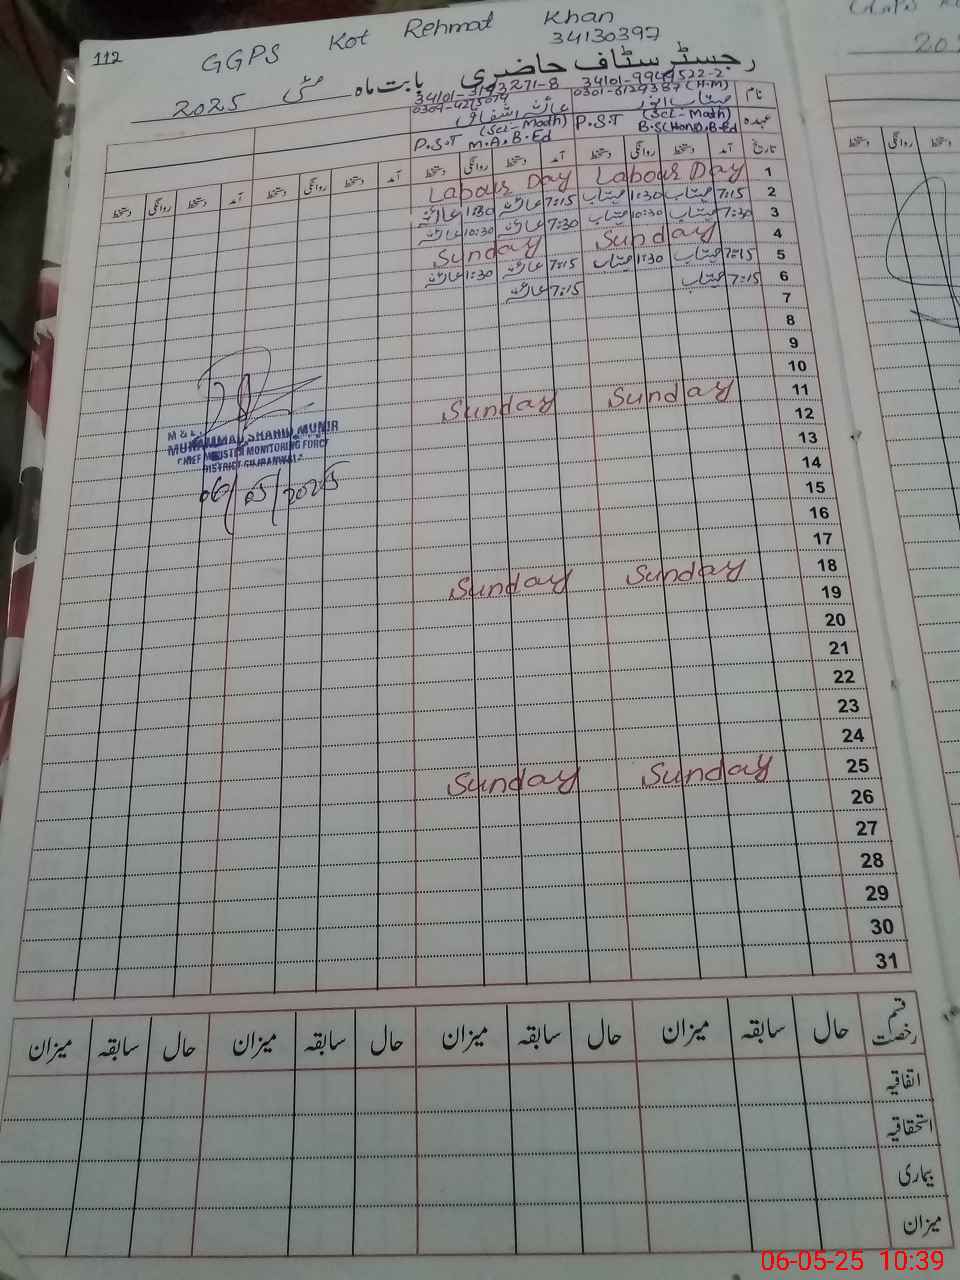 112
GGPS Kot Rehmat Khan
34130397
رجسٹر سٹاف حاضری بابت ماہ مئی 2025
نام
34101-9949522-2
0301-6129387 (H-M)
34101-3193271-8
عہدہ
P.S.T (Sci-Math)
B.S(Hon).B.Ed
P.S.T (Sci-Math)
M.A.B.Ed
تاریخ آمد دستخط روانگی دستخط آمد دستخط روانگی دستخط آمد دستخط روانگی دستخط آمد دستخط روانگی دستخط
1 Labour Day Labour Day
2 7:15 1:30 7:15 1:30
3 7:30 10:30 7:30 10:30
4 Sunday Sunday
5 7:15 1:30 7:15 1:30
6 7:15 7:15
7
8
9
10
11 Sunday Sunday
12
13
14
15
16
17
18 Sunday Sunday
19
20
21
22
23
24
25 Sunday Sunday
26
27
28
29
30
31
MUHAMMAD SHAHID MUNIR
CHIEF MINISTER MONITORING FORCE
DISTRICT GUJRANWALA
06/05/2025
قسم رخصت حال سابقہ میزان حال سابقہ میزان حال سابقہ میزان حال سابقہ میزان
اتفاقیہ
استحقاقیہ
بیماری
میزان
06-05-25 10:39